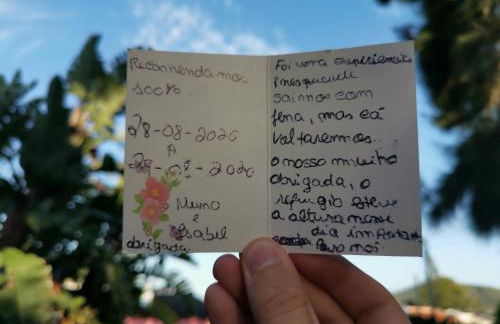 Recomendamos
100%.
28-08-2020
A
29-08-2020
Nuno
e
Isabel
obrigada
Foi uma experiencia
inesquecivel
saimos com
pena, mas cá
voltaremos...
o nosso muito
obrigada, o
refugio esteve
a altura nesse
dia importante
para moi